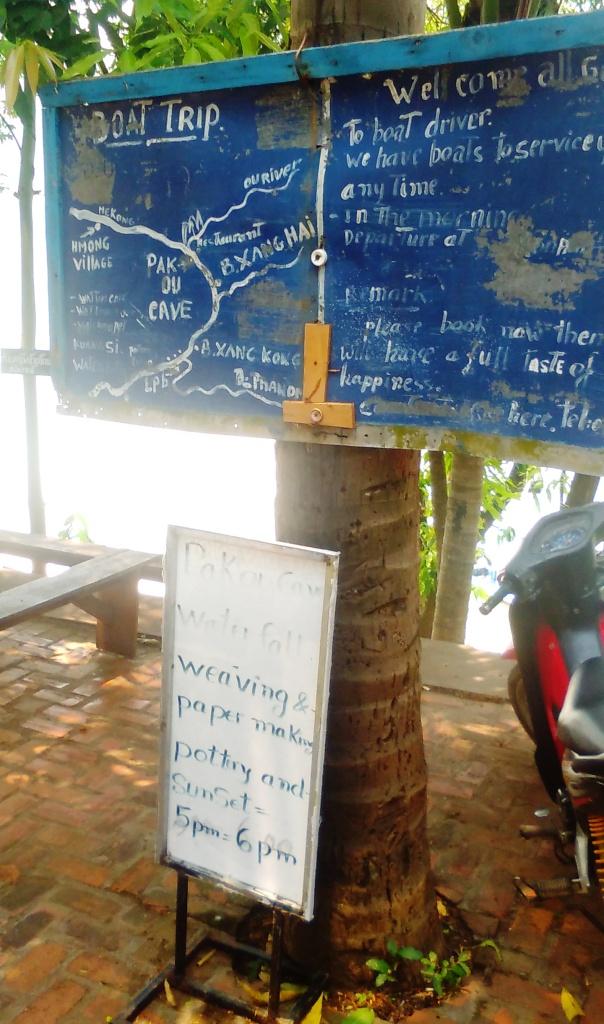 BOAT TRIP
OU RIVER
MEKONG
HMONG
VILLAGE
Restaurant
B. XANG HAI
PAK-
OU
CAVE
B. XANG KONG
LPB
B. PHANOM
Wel come all
To boat driver.
we have boats to service
any time.
- in the morning
Departure at
Remark
please book now then
will have a full taste of
happiness.
here. Tel
Pakou Cav
Water fall
weaving &
paper making
pottry and
Sunset =
5pm = 6pm